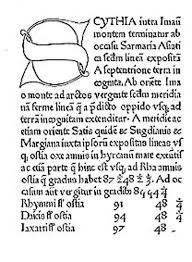 SCYTHIA intra Imaū
montem terminatur ab
occasu Sarmatia Asiati
ca sedm lineā expositā
A septentrione terra in
cognita. Ab oriēte Ima
o monte ad arctos vergēte sedm meridia
nā ferme lineā q a pdicto oppido vsq ad
terrā incognitam extenditur. A meridie ac
etiam oriente Satis quidē & Sugdianis &
Margiana iuxta ipsorū expositas lineas vſ
q ostia oxe amnis in hyrcanū mare exeūtis
ac etiā parte q hinc est vsq ad Rha amnis
ostia q gradus habet 87 48 Ad oc
casum autē vergitur in gradib 84 44
Rhymni ff ostia 91 48
Daicis ff ostia 94 48
Iaxarti ff ostia 97 48